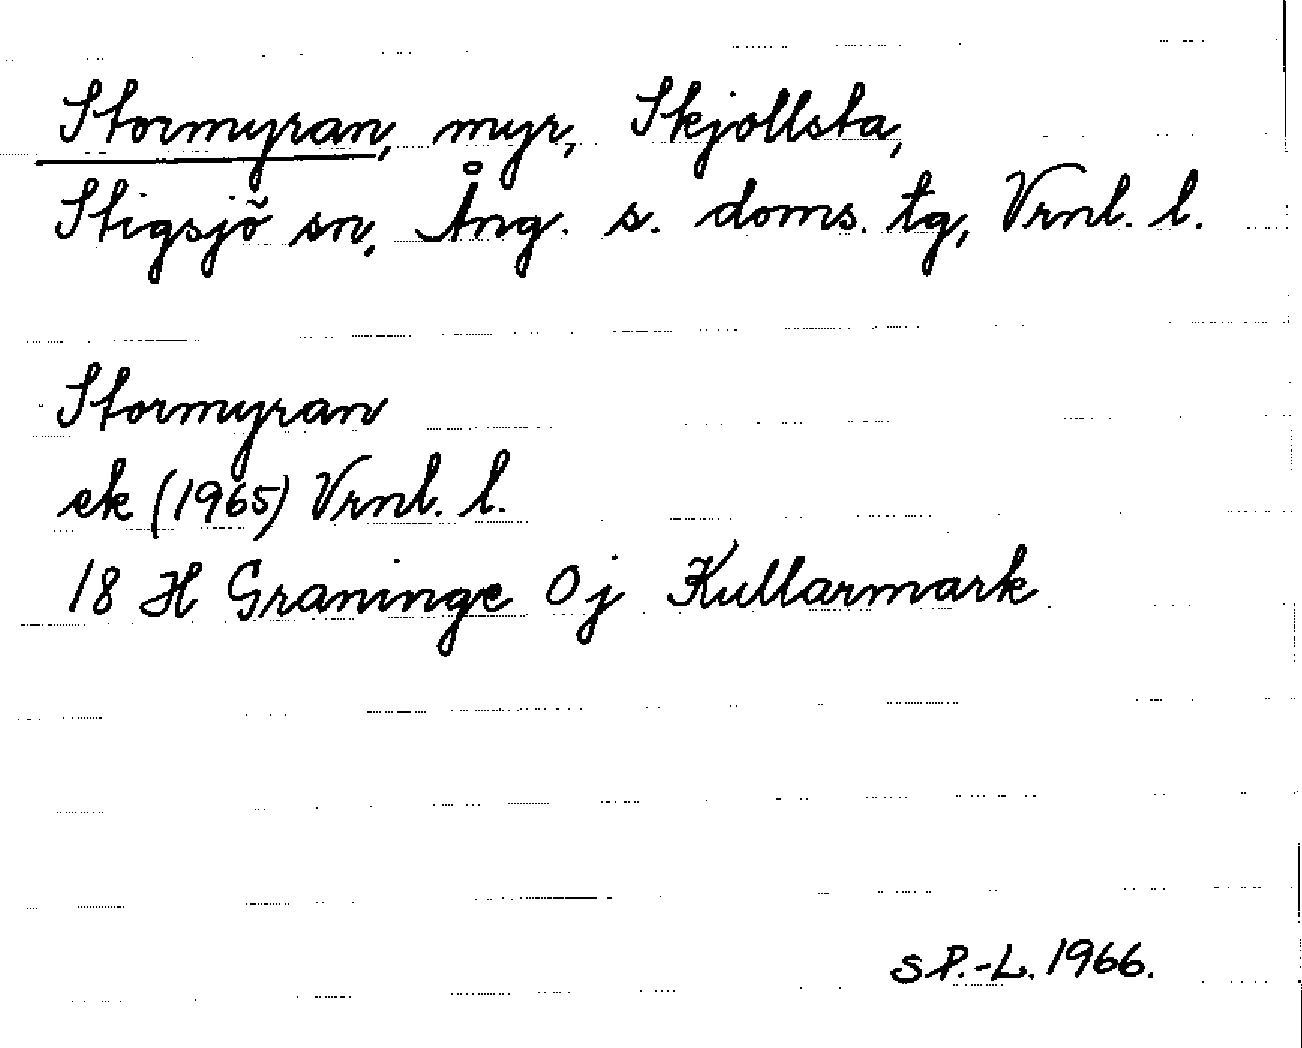 Stormyran, myr, Skjollsta,
Stigsjö sn, Ång. s. doms. tg, Vrnl. l.
Stormyran
ek (1965) Vrnl. l.
18 H Graninge 0j Kullarmark
SP.-L. 1966.